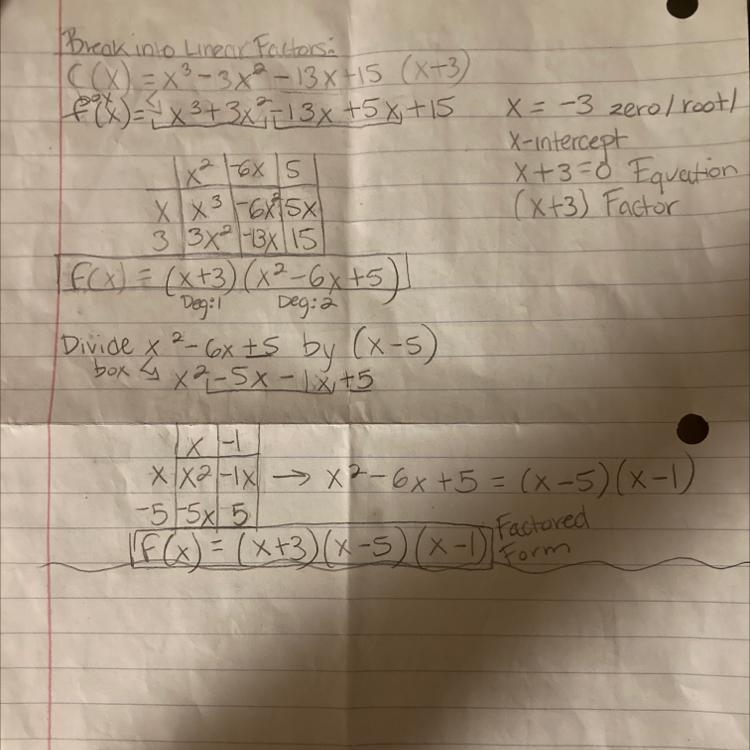 Break into Linear Factors:
C(x) = x³ - 3x² - 13x + 15 (x+3)
f(x) = x³ + 3x² - 13x + 5x + 15
x = -3 zero/root/
x-intercept
x + 3 = 0 Equation
(x+3) Factor
x² -6x 5
x x³ -6x² 5x
3 3x² -13x 15
f(x) = (x+3)(x² - 6x + 5)
Deg:1 Deg:2
Divide x² - 6x + 5 by (x-5)
box ↳ x² - 5x - 1x + 5
x -1
x x2 -1x → x² - 6x + 5 = (x-5)(x-1)
-5 -5x 5
f(x) = (x+3)(x-5)(x-1) Factored
Form